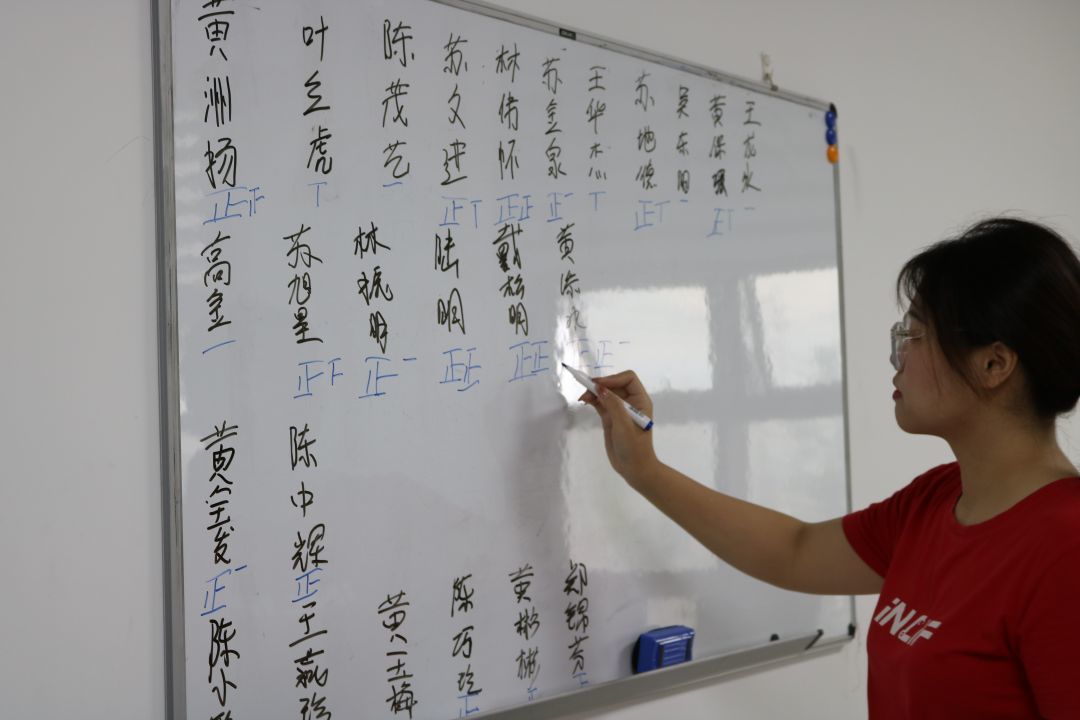 黄洲扬
叶志虎
陈茂艺
苏文进
林伟怀
苏金泉
王华杰
苏地德
吴东阳
黄保
王成水
正
T
一
正T
正正
正一
T
正T
一
正T
一
高金
苏旭星
林振明
陆明
戴松明
黄添
一
正F
正一
正正
正正
正一
黄金发
陈中辉
正一
正
陈小
黄玉梅
陈巧玲
黄彬彬
郑锦芳
iNCF